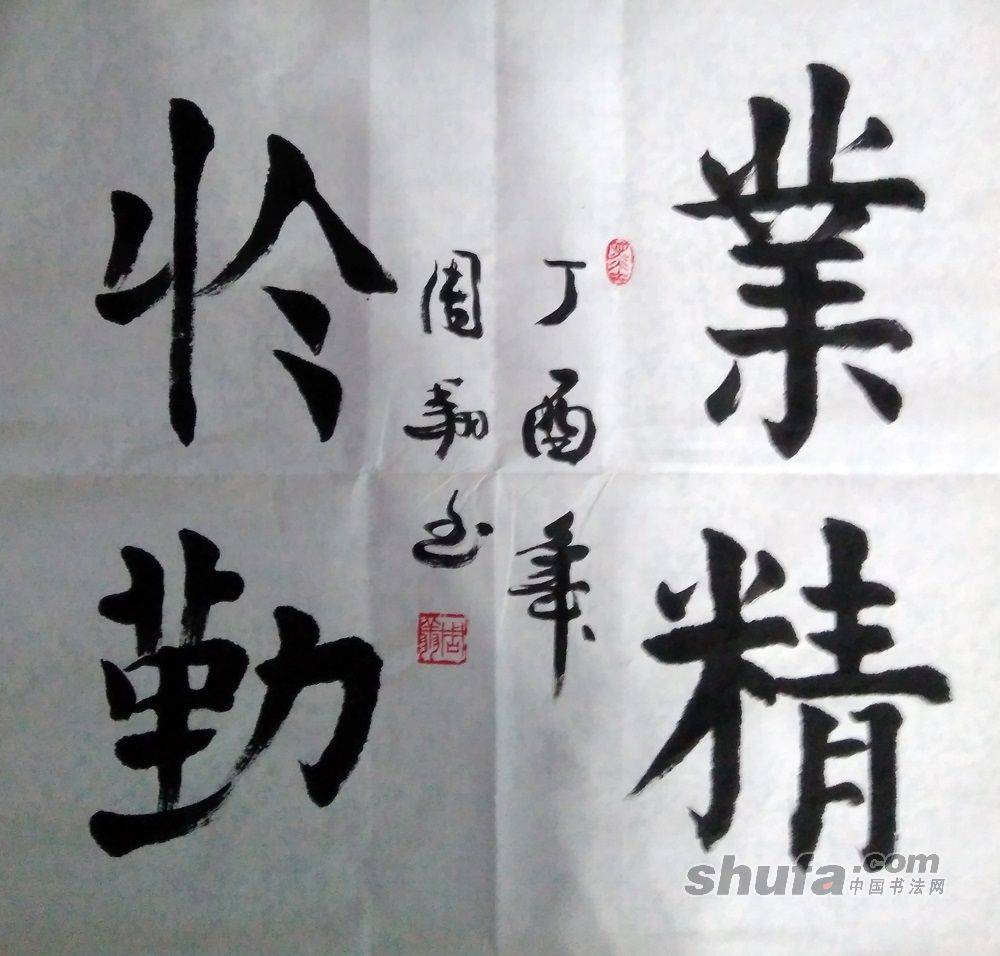 業精
於勤
丁酉年
周翔书
shufa.com
中国书法网